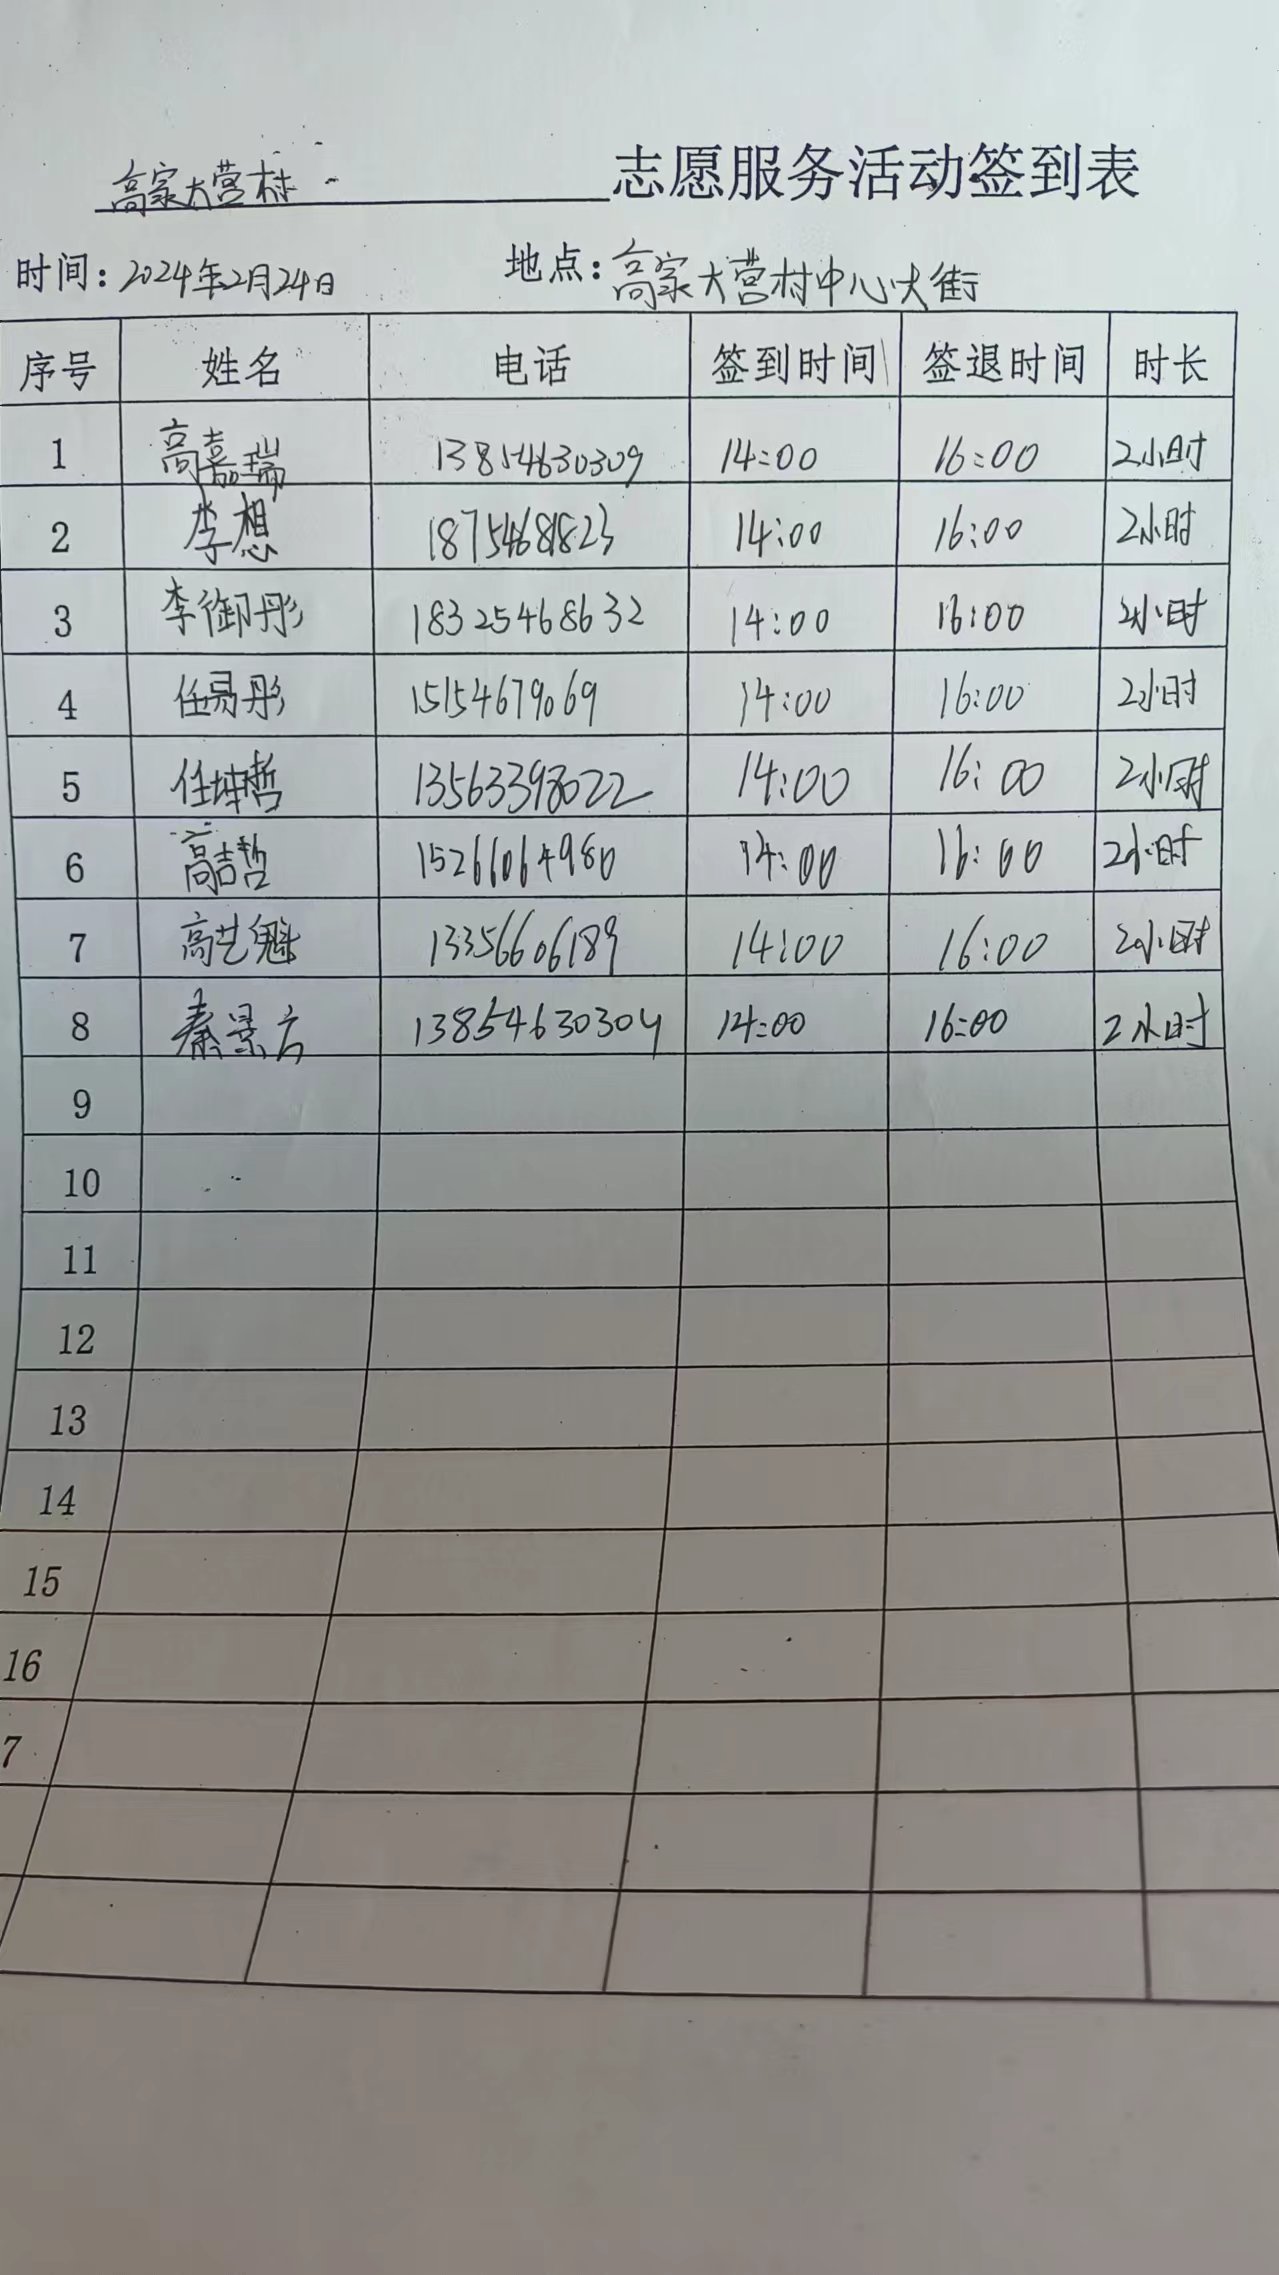 高家大营村 志愿服务活动签到表
时间：2024年2月24日 地点：高家大营村中心大街
序号 姓名 电话 签到时间 签退时间 时长
1 高嘉瑞 13854630309 14:00 16:00 2小时
2 李想 18754681823 14:00 16:00 2小时
3 李御彤 18325468632 14:00 16:00 2小时
4 任易彤 15154679069 14:00 16:00 2小时
5 任坤哲 13563398022 14:00 16:00 2小时
6 高吉哲 15266064980 14:00 16:00 2小时
7 高艺魁 13356606189 14:00 16:00 2小时
8 秦景方 13854630304 14:00 16:00 2小时
9
10
11
12
13
14
15
16
7